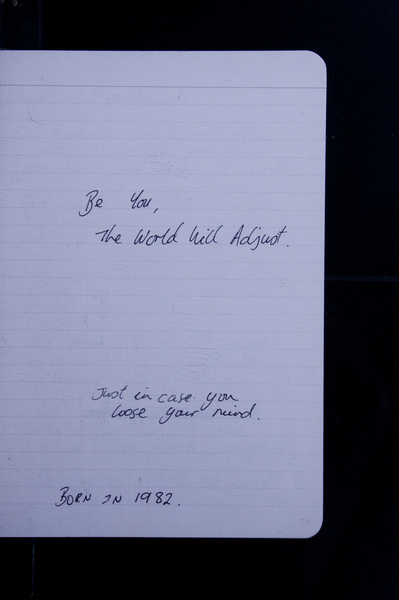 Be You,
The World Will Adjust.
Just in case you
loose your mind.
BORN IN 1982.